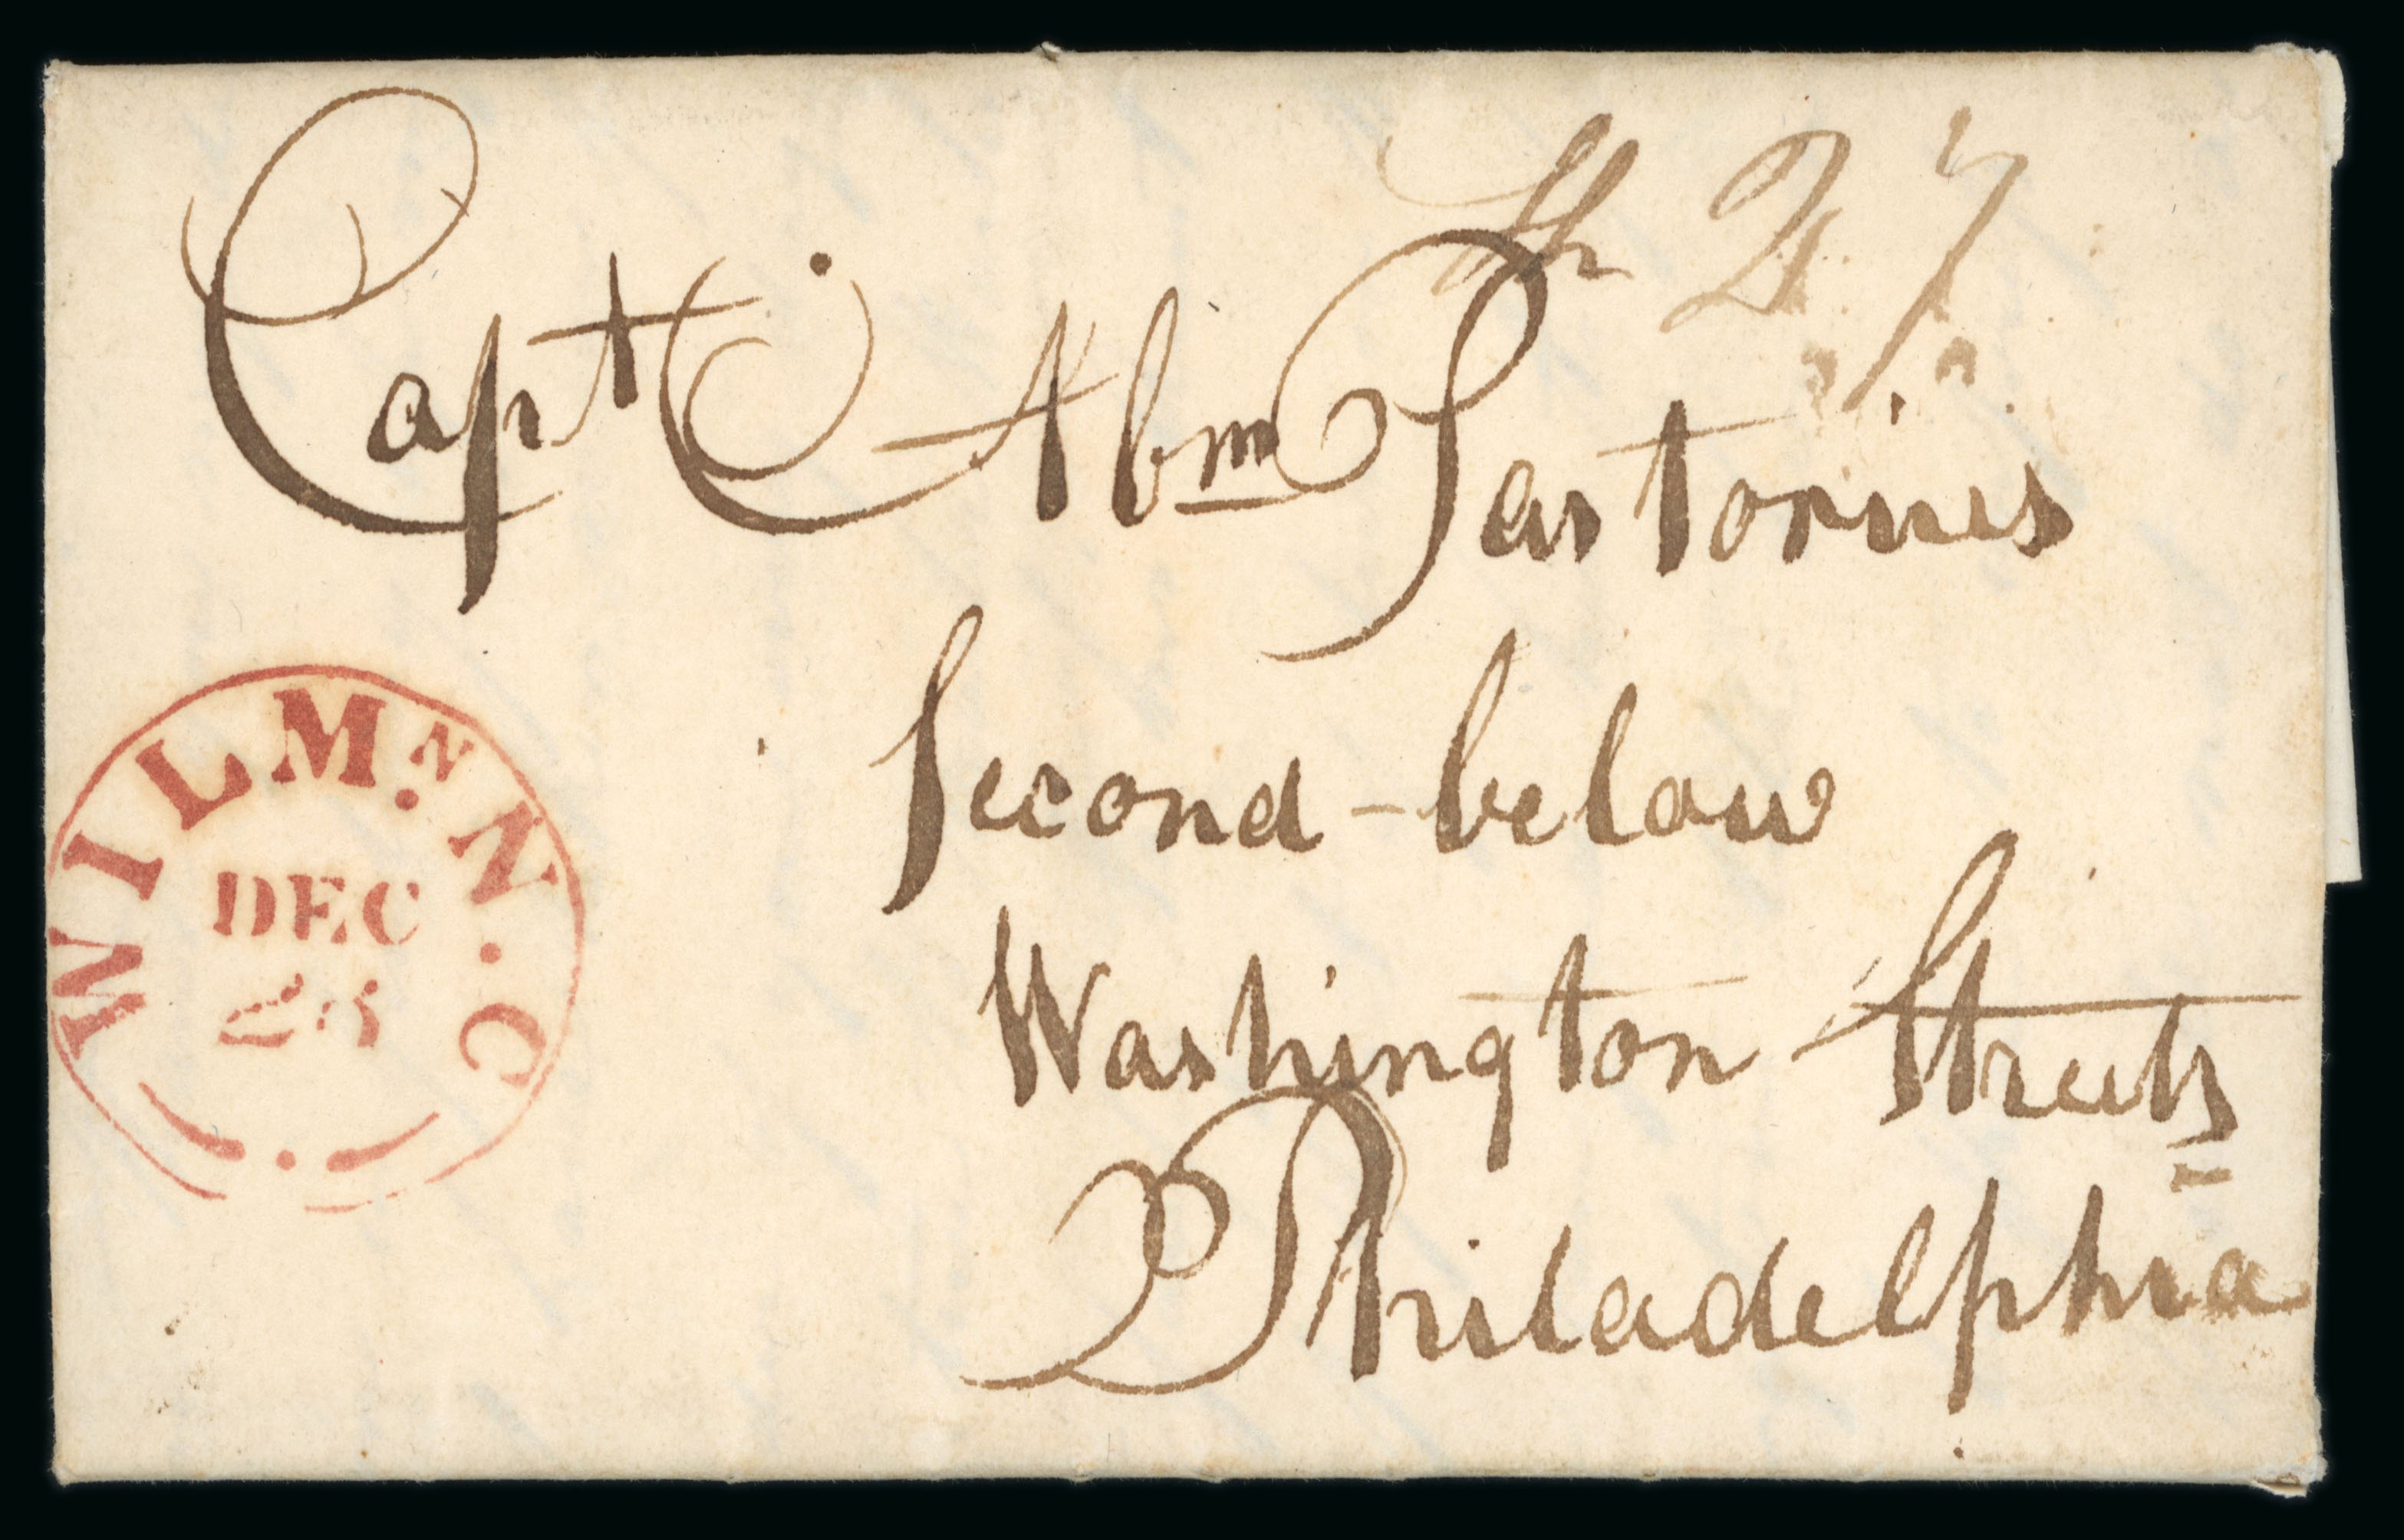 Sh 27
Capt. Abm Pastorius
Second - below
Washington Streets
Philadelphia
WILM.N N.C
DEC